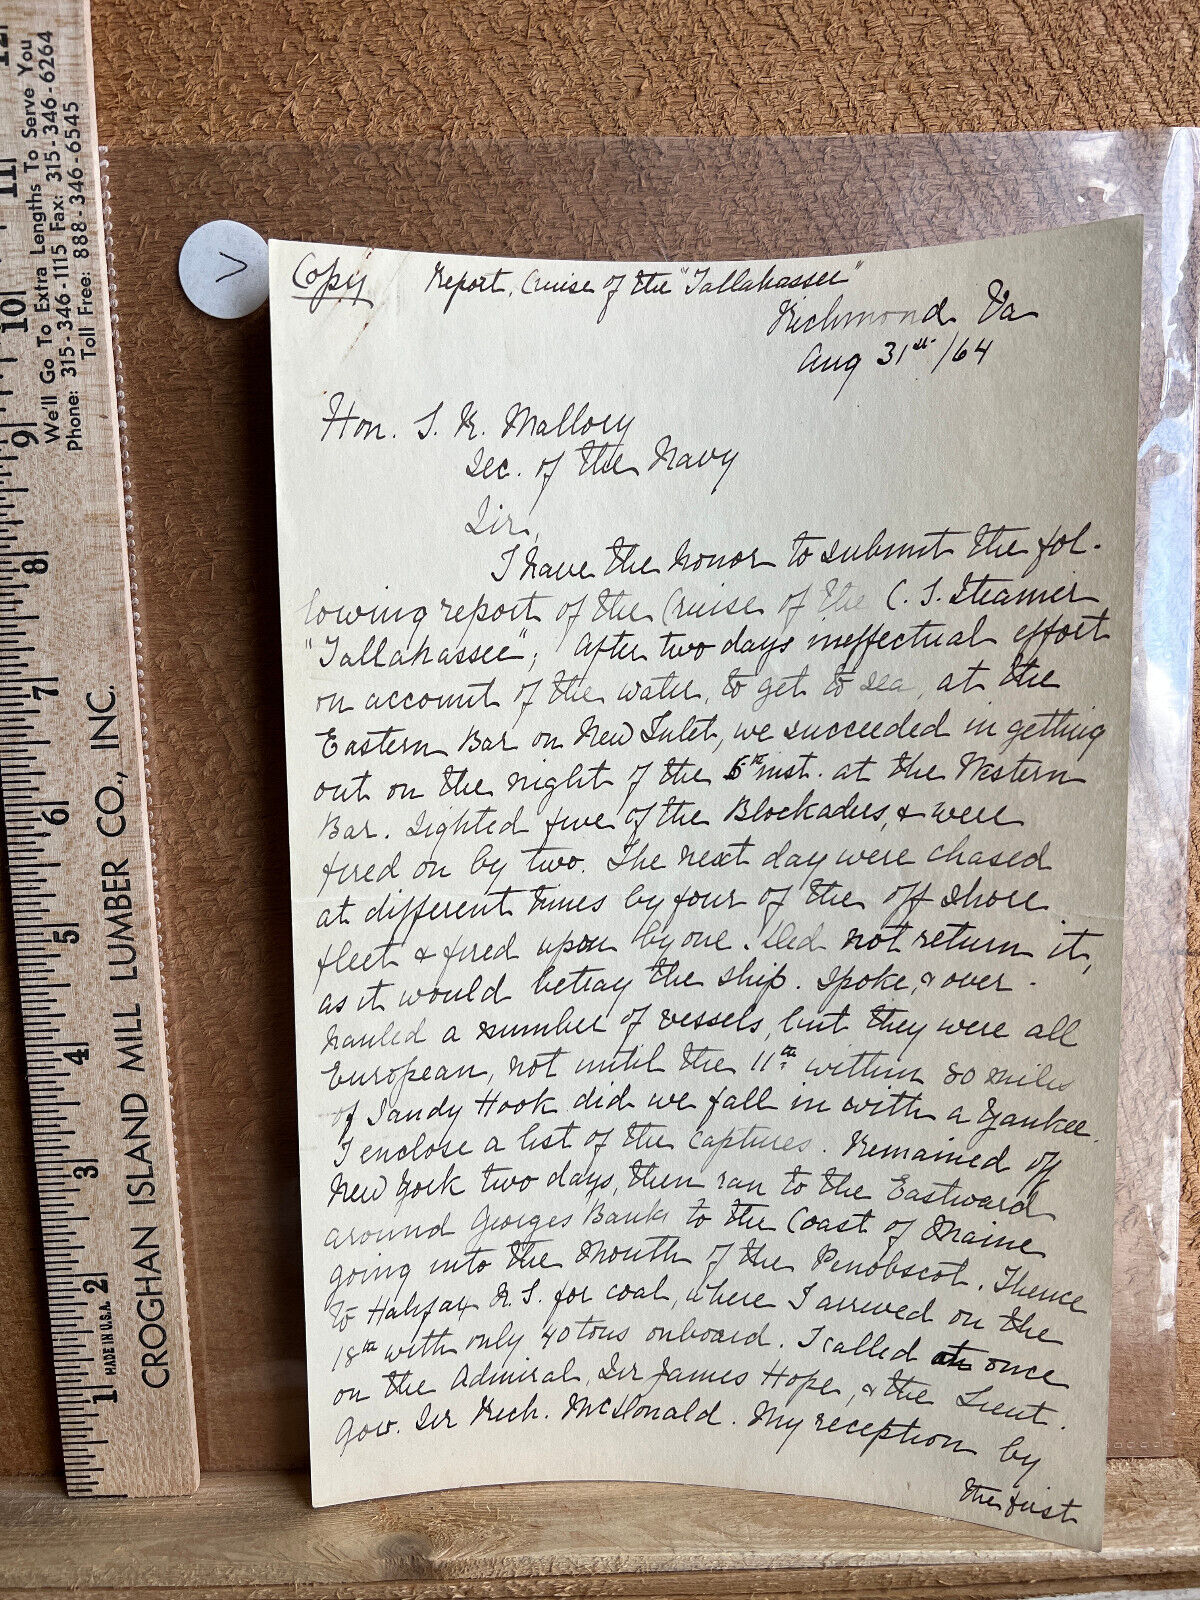 Copy Report, Cruise of the "Tallahassee"
Richmond Va
Aug 31st /64
Hon. S. R. Mallory
Sec. of the Navy
Sir,
I have the honor to submit the fol-
lowing report of the Cruise of the C. S. Steamer
"Tallahassee"; After two days ineffectual effort
on account of the water, to get to sea, at the
Eastern Bar on New Inlet, we succeeded in getting
out on the night of the 6th inst. at the Western
Bar. Sighted five of the Blockaders, & were
fired on by two. The next day were chased
at different times by four of the off shore
fleet & fired upon by one. Did not return it,
as it would betray the ship. Spoke, & over-
hauled a number of vessels, but they were all
European, not until the 11th within 80 miles
of Sandy Hook did we fall in with a Yankee.
I enclose a list of the captures. Remained off
New York two days, then ran to the Eastward
around Georges Banks to the Coast of Maine
going into the mouth of the Penobscot. Thence
to Halifax N.S. for coal, where I arrived on the
18th with only 40 tons onboard. I called at once
on the Admiral, Sir James Hope, & the Lieut.
Gov. Sir Rich. McDonald. My reception by
the first
>
12
11
10
9
8
7
6
5
4
3
2
1
We'll Go To Extra Lengths To Serve You
Phone: 315-346-1115 Fax: 315-346-6264
Toll Free: 888-346-6545
CROGHAN ISLAND MILL LUMBER CO., INC.
MADE IN U.S.A.